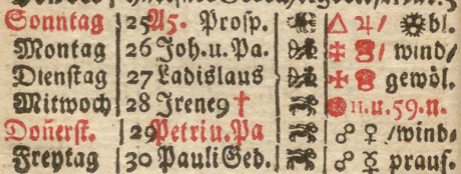 Sonntag 25 A5. Prosp. △ ♃/ bl.
Montag 26 Joh. u. Pa. wind/
Dienſtag 27 Ladislaus gewöl.
Mitwoch 28 Irene9 † 11. u. 59. n.
Doñerſt. 29 Petri u. Pa ☍ ♀ /wind/
Freytag 30 Pauli Ged. ☍ ☿ prauſ.